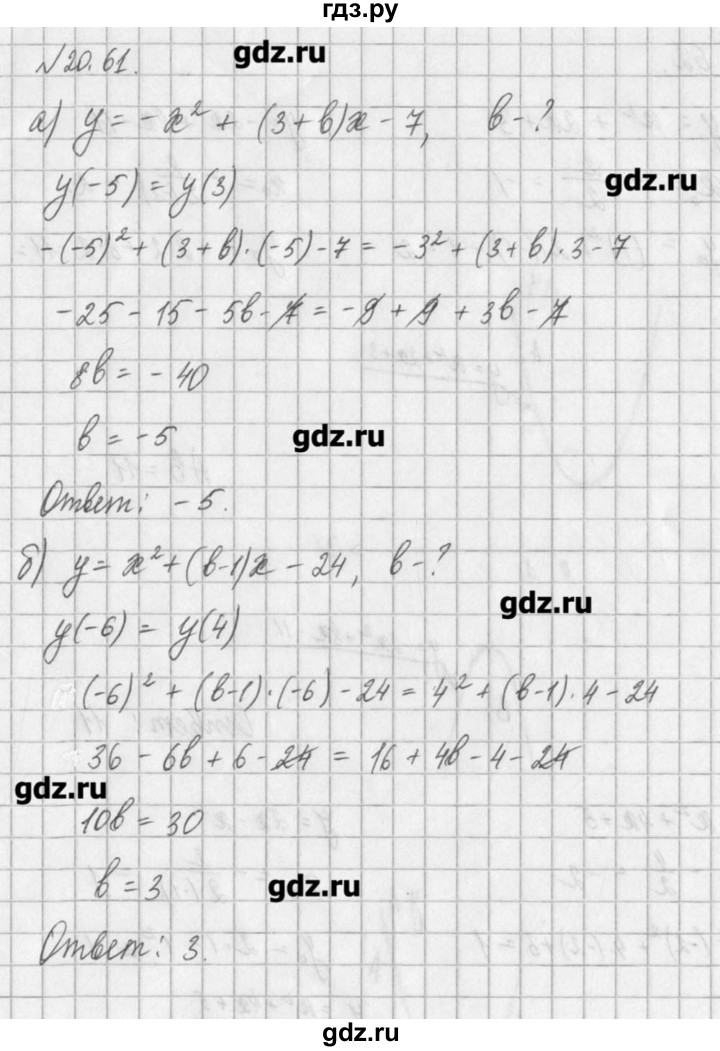 гдз.ру
gdz.ru
№20.61.
а) y = -x² + (3+в)x - 7, в-?
gdz.ru
y(-5) = y(3)
-(-5)² + (3+в)·(-5) - 7 = -3² + (3+в)·3 - 7
-25 - 15 - 5в - 7 = -9 + 9 + 3в - 7
8в = -40
в = -5
gdz.ru
Ответ: -5.
б) y = x² + (в-1)x - 24, в-?
gdz.ru
y(-6) = y(4)
(-6)² + (в-1)·(-6) - 24 = 4² + (в-1)·4 - 24
36 - 6в + 6 - 24 = 16 + 4в - 4 - 24
gdz.ru
10в = 30
в = 3
gdz.ru
Ответ: 3.
gdz.ru